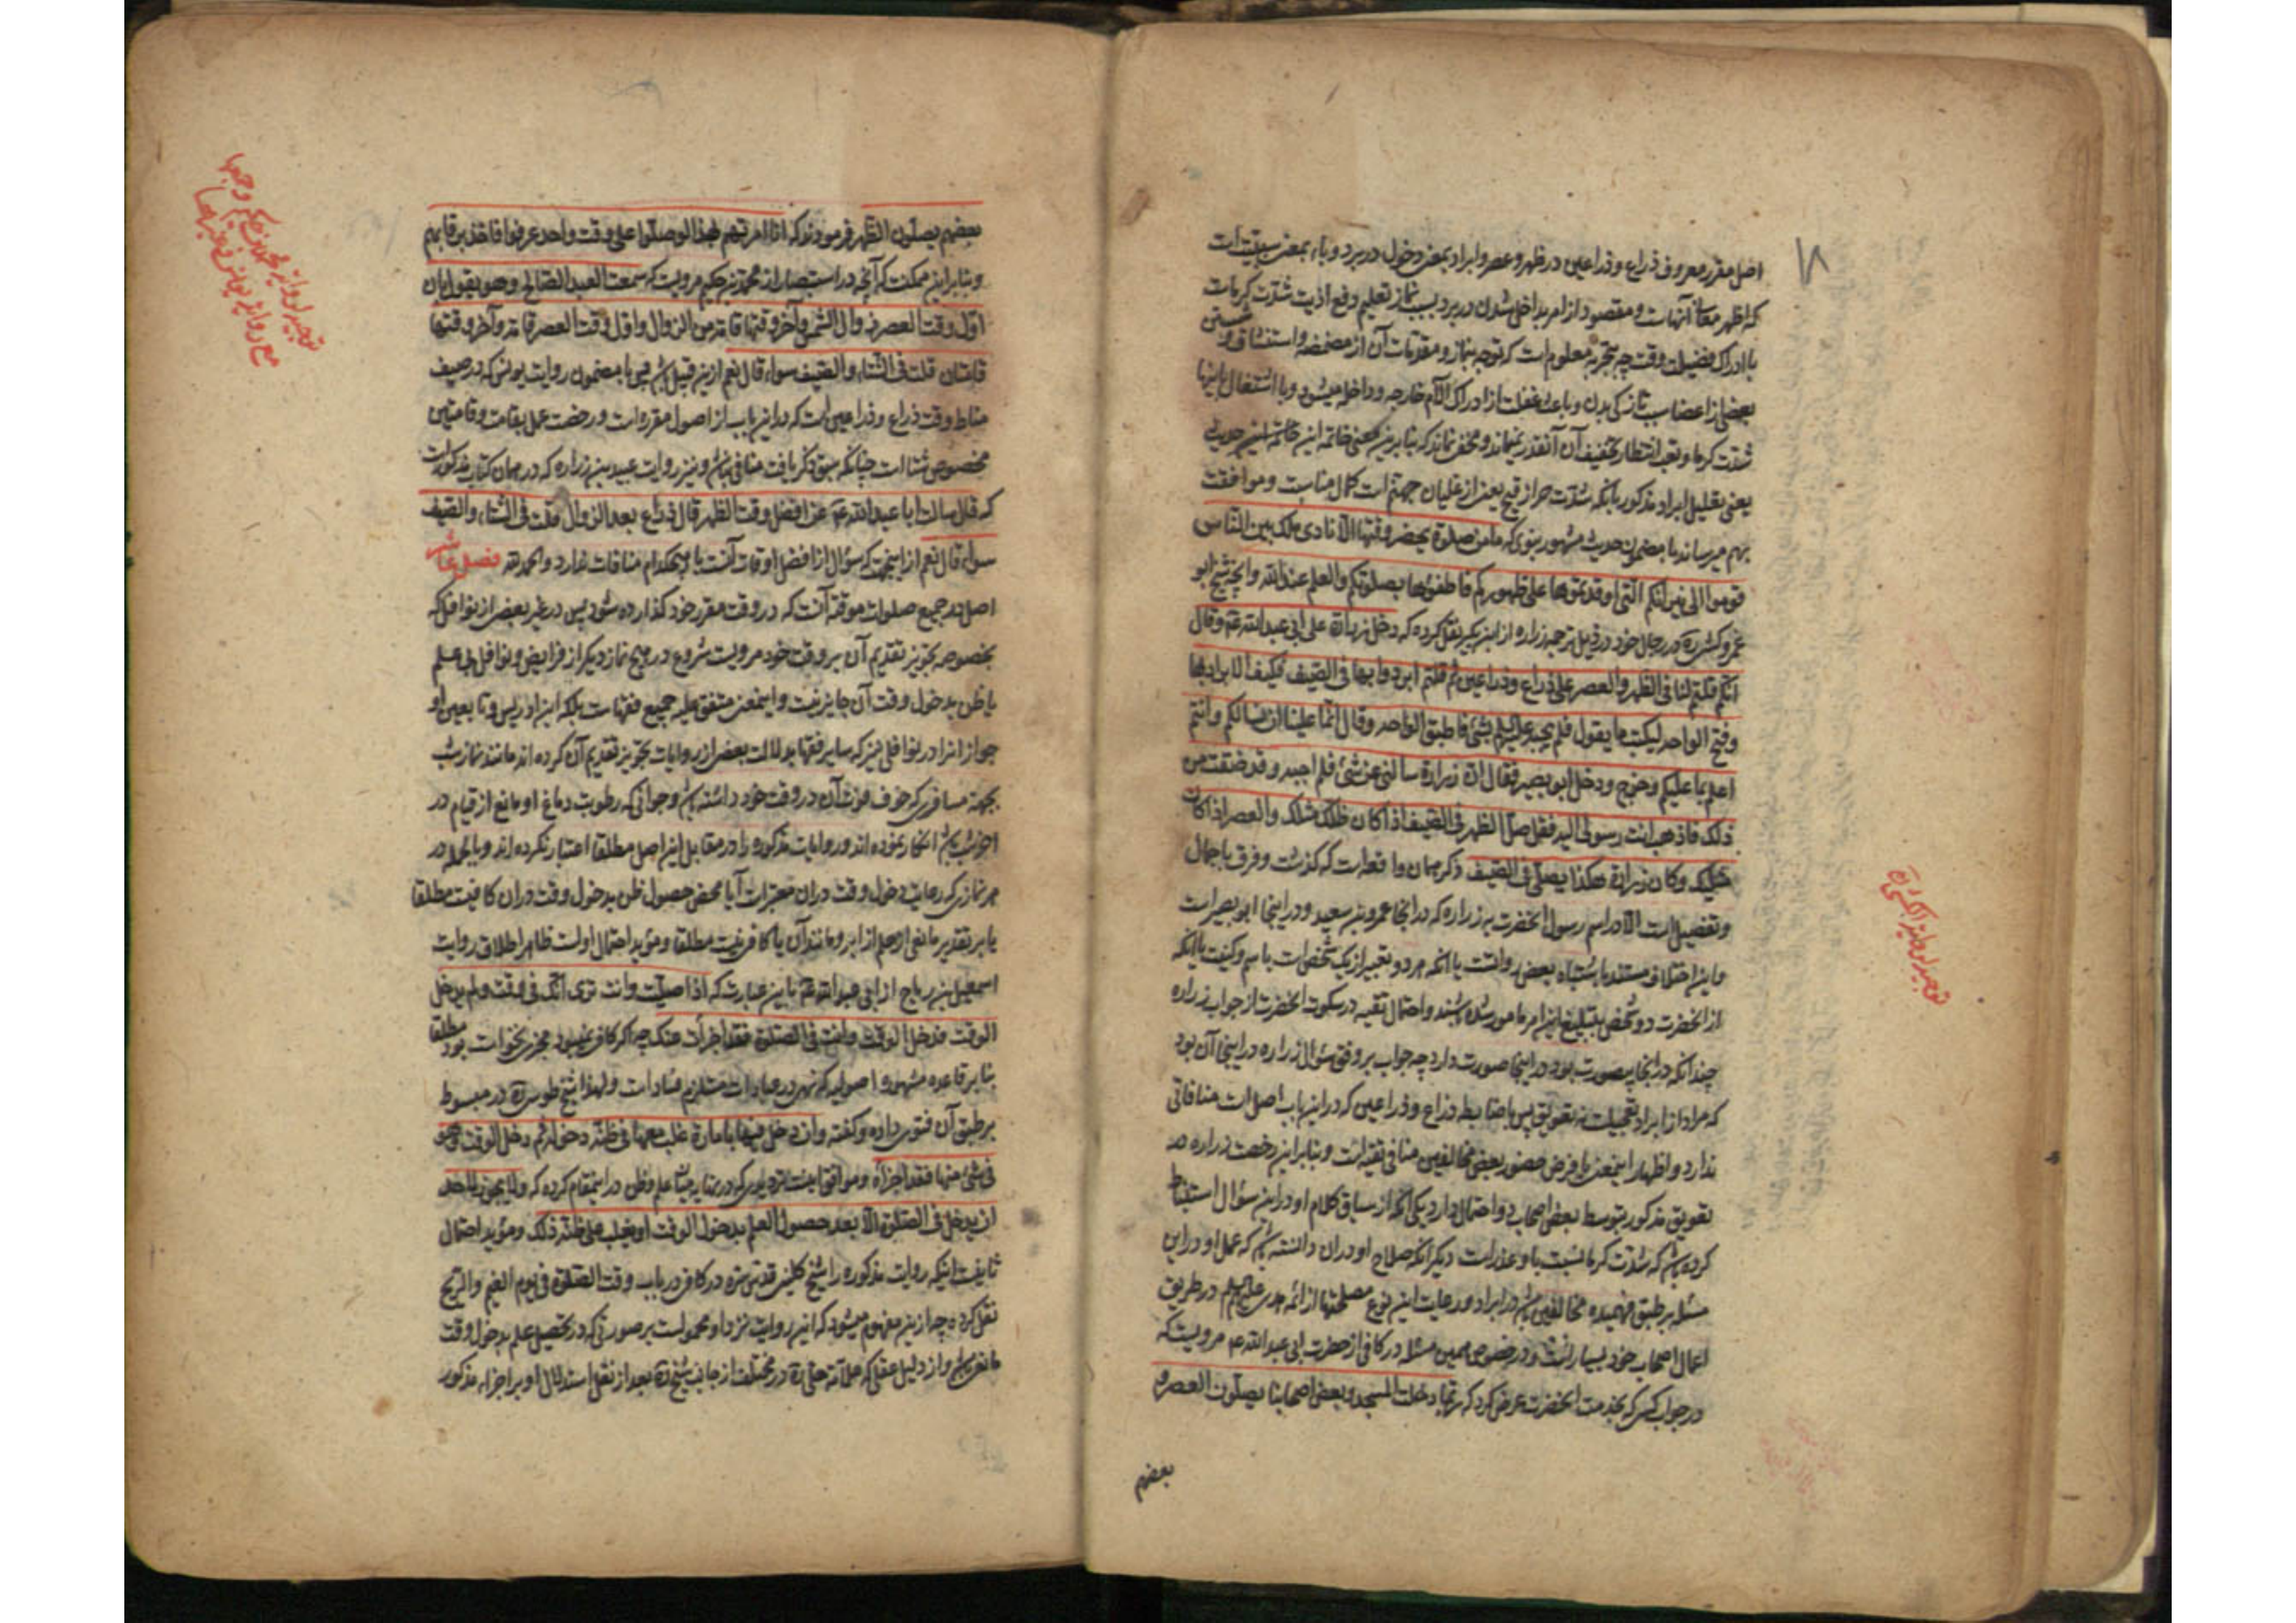 ۱۸
اصل مقرر معروف ذراع و ذراعین در ظهر و عصر و ابراد بمعنی دخول در برد و باء بمعنی سببیت است
که اظهر معانی آنهاست و مقصود از امر بداخل شدن در برد بسبب نماز تعلیم دفع اذیت شدت کرماست
با ادراک فضیلت وقت چه بتجربه معلوم است که توجه بنماز و مقدمات آن از مضمضه و استنشاق و شستن
بعضی از اعضا سبب تازکی بدن و باعث غفلت از ادراک آلام خارجه و داخله میشود و با اشتغال باینها
شدت کرما و تعب انتظار تخفیف آن آنقدر نمیماند و مخفی نماند که بنا برین معنی خاتمه این حدیث
یعنی تعلیل ابراد مذکور بانکه شدت حر از قیح یعنی از غلیان جهنم است کمال مناسبت و موافقت
بهم میرساند با مضمون حدیث مشهور نبوی که ما من صلوة یحضر وقتها الا نادی ملک بین الناس
قوموا الی نیرانکم التی اوقدتموها علی ظهورکم فاطفئوها بصلوتکم والعلم عند الله و آنچه شیخ ابو
عمرو کشی ره در رجال خود در ذیل ترجمه زراره از ابن بکیر نقل کرده که دخل زرارة علی ابی عبدالله ع وقال
انکم قلتم لنا فی الظهر والعصر علی ذراع وذراعین ثم قلتم ابردوا بها فی الصیف فکیف الابراد بها
وفتح الواحه لیکتب ما یقول فلم یجبه علیه السلم بشئ فاطبق الواحه وقال انما علینا ان نسالکم وانتم
اعلم بما علیکم وخرج ودخل ابو بصیر فقال ان زرارة سالنی عن شئ فلم اجبه وقد ضقت من
ذلک فاذهب انت رسولی الیه فقل صل الظهر فی الصیف اذا کان ظلک مثلک والعصر اذا کان
مثلیک وکان زرارة هکذا یصلی فی الصیف ذکر همان واقعه است که کذشت و فرق باجمال
و تفصیل است الا در اسم رسول انحضرت به زراره که در انجا عمرو بن سعید و در اینجا ابو بصیر است
و این اختلاف مستند باشتباه بعض رواتست یا انکه هر دو تعبیر از یک شخص است باسم و کنیت یا انکه
از انحضرت دو شخص بتبلیغ این امر مامور شده باشند و احتمال تقیه در سکوت انحضرت از جواب زراره
چندانکه در انجا بیصورت بود در اینجا صورت دارد چه جواب بر وفق سؤال زراره در اینجا آن بود
که مراد از ابراد تعجیلست نه تعویق پس با ضابطه ذراع و ذراعین که در این باب اصل است منافاتی
ندارد و اظهار اینمعنی با فرض حضور بعض مخالفین منافی تقیه است و بنابراین رخصت زراره در
تعویق مذکور بتوسط بعض اصحاب دو احتمال دارد یکی انکه از سیاق کلام او در این سؤال استنباط
کرده باشد که شدت کرما نسبت باو عذر است دیکر انکه صلاح او در ان دانسته باشد که عمل او در این
مسئله بر طبق فهمیده مخالفین باشد در ابراد و رعایت این نوع مصلحتها از ائمه هدی علیهم السلم در طریق
اعمال اصحاب خود بسیار است و در خصوص همین مسئله در کافی از حضرت ابی عبدالله ع مرویست که
در جواب کسی که بخدمت انحضرت عرض کرد که ربما دخلت المسجد وبعض اصحابنا یصلون العصر و
بعضهم
بعضهم یصلون الظهر فرمودند که انا امرتهم بهذا لو صلوا علی وقت واحد عرفوا فاخذ برقابهم
و بنابراین ممکنست که آنچه در استبصار از محمد بن حکیم مرویست که سمعت العبد الصالح وهو یقول ان
اول وقت الظهر زوال الشمس وآخر وقتها قامة من الزوال واول وقت العصر قامة وآخر وقتها
قامتان قلت فی الشتاء والصیف سواء قال نعم ازین قبیل باشد پس با مضمون روایت یونس که در صیف
مناط وقت ذراع و ذراعین است که در این باب از اصول مقرره است و رخصت عمل بقامت و قامتین
مخصوص شتا است چنانکه سبق ذکر یافت منافی نباشد و نیز روایت عبید بن زراره که در همان کتاب مذکور است
که قال سالت ابا عبدالله ع عن افضل وقت الظهر قال ذراع بعد الزوال قلت فی الشتاء والصیف
سواء قال نعم ازینجهت که سؤال از افضل اوقات آنست با هیچکدام منافات ندارد والحمد لله فصل عاشر
اصل در جمیع صلوات موقته آنست که در وقت مقرر خود کذارده شود پس در غیر بعض از نوافل که
بخصوصه تجویز تقدیم آن بر وقت خود مرویست شروع در هیچ نماز دیکر از فرایض و نوافل بی علم
یا ظن بدخول وقت آن جایز نیست و اینمعنی متفق علیه جمیع فقهاست بلکه ابن ادریس و تابعین او
جواز انرا در نوافلی نیز که سایر فقها بدلالت بعض از روایات تجویز تقدیم آن کرده اند مانند نماز شب
بجهة مسافری که خوف فوت آن در وقت خود داشته باشد و جوانی که رطوبت دماغ او مانع از قیام در
اخر شب باشد انکار نموده اند و روایات مذکوره را در مقابل این اصل مطلقا اعتبار نکرده اند و بالجمله در
هر نمازی که رعایت دخول وقت دران معتبر است آیا محض حصول ظن بدخول وقت دران کافیست مطلقا
یا بر تقدیر مانعی از علم از ابر و مانند آن یا کافی نیست مطلقا و مؤید احتمال اولست ظاهر اطلاق روایت
اسمعیل بن ریاح از ابی عبدالله ع باین عبارت که اذا صلیت وانت تری انک فی وقت ولم یدخل
الوقت فدخل الوقت وانت فی الصلوة فقد اجزأت عنک چه اکر کافی نمیبود مجزی نخواست بود مطلقا
بنا بر قاعده مشهوره اصولیه که نهی در عبادات مستلزم فساد است و لهذا شیخ طوسی ره در مبسوط
بر طبق آن فتوی داده و کفته وان دخل فیها بامارة غلب معها فی ظنه دخوله ثم دخل الوقت وهو
فی شئ منها فقد اجزأه
ان یدخل فی الصلوة الا بعد حصول العلم بدخول الوقت او یغلب علی ظنه ذلک و مؤید احتمال
ثانیست اینکه روایت مذکوره را شیخ کلینی قدس سره در کافی در باب وقت الصلوة فی یوم الغیم والریح
نقل کرده چه ازین مفهوم میشود که این روایت نزد او محمولست بر صورتی که در تحصیل علم بدخول وقت
مانعی باشد و از دلیل عقلی که علامه حلی ره در مختلف از جانب شیخ ره بعد از نقل استدلال او بر اجزاء مذکور